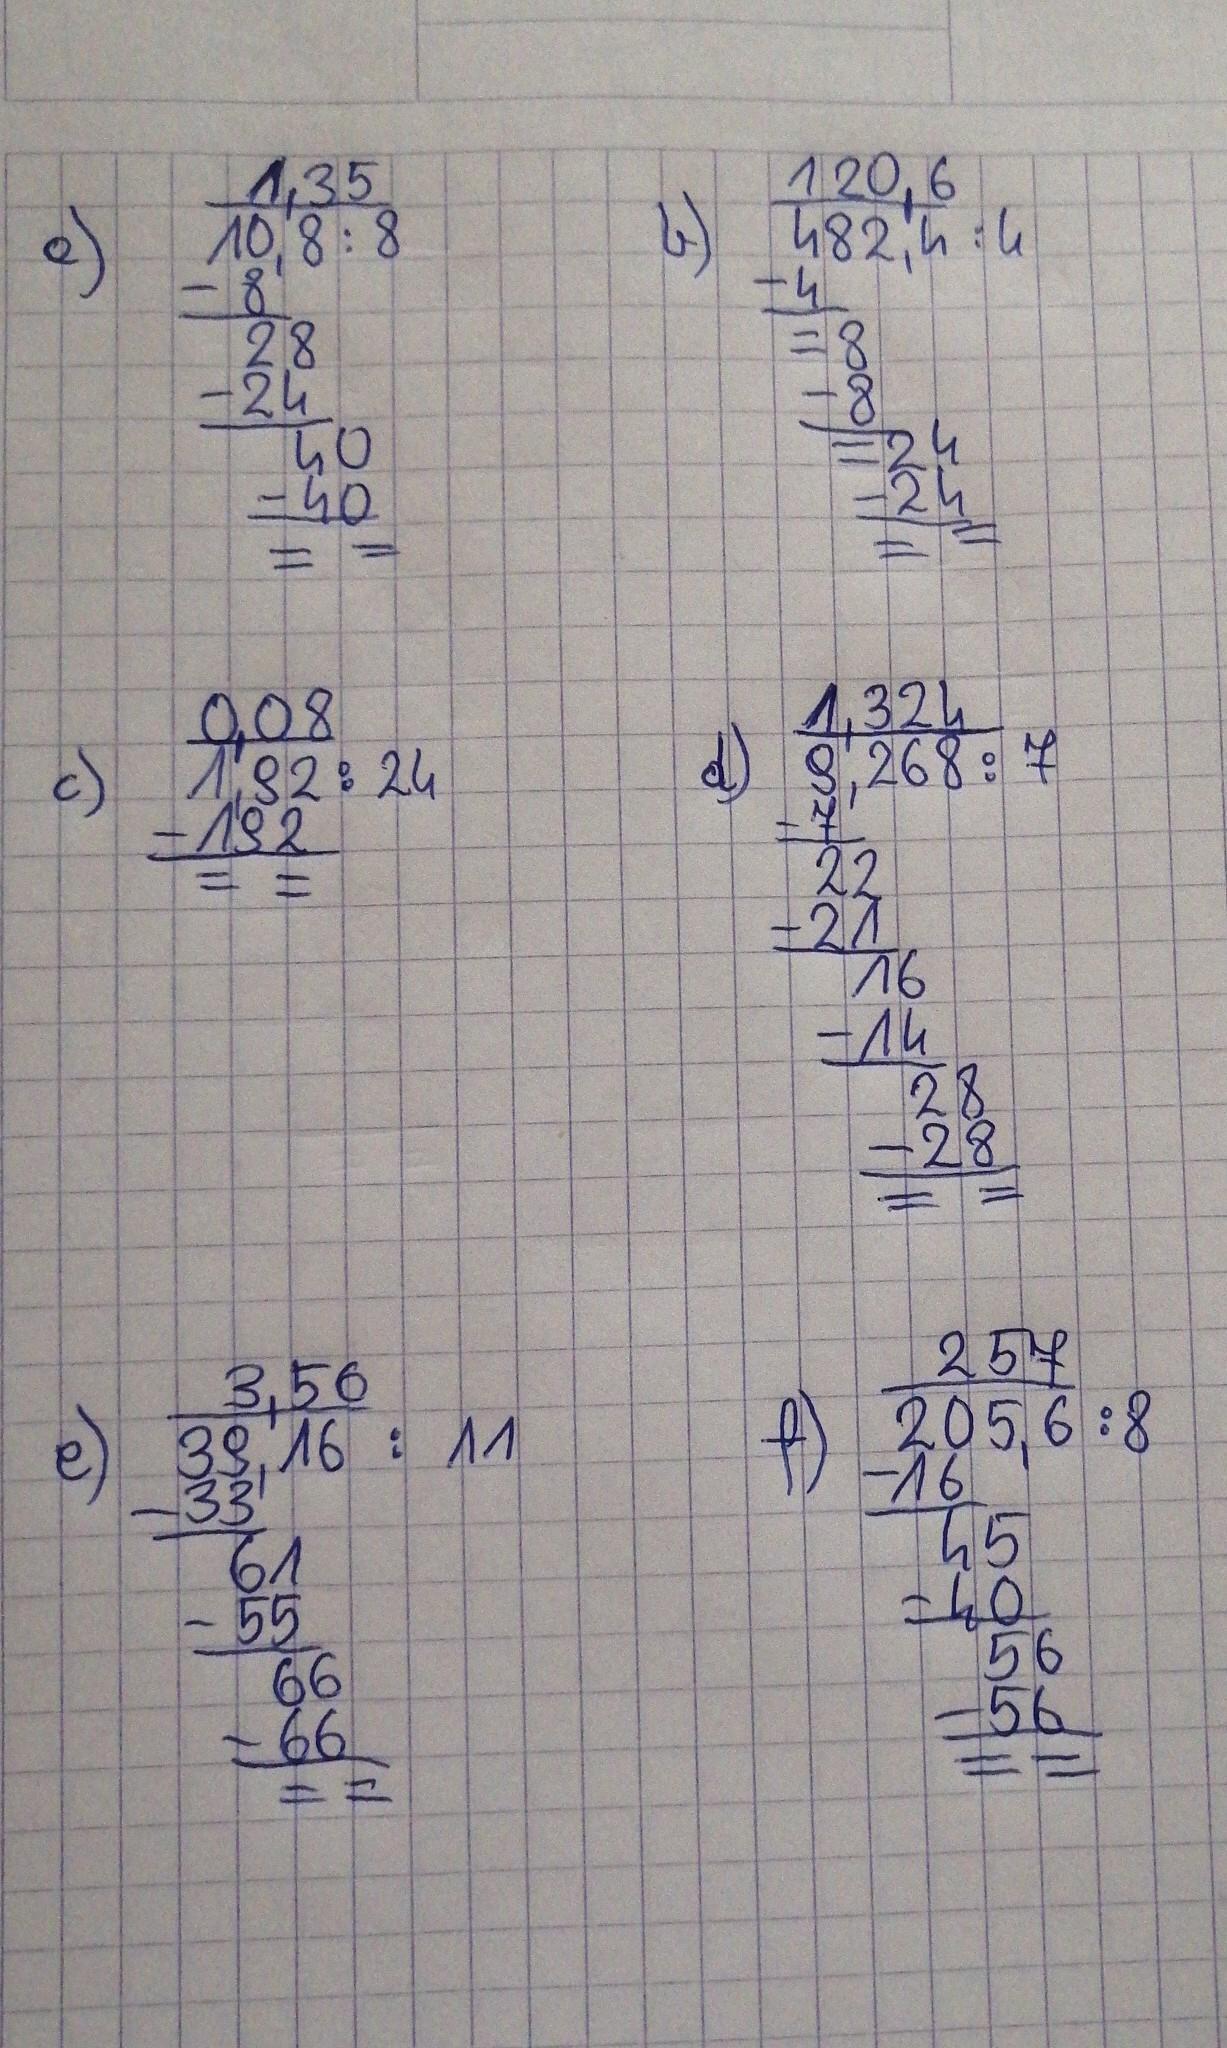 a)
1,35
10,8 : 8
- 8
28
- 24
40
- 40
= =
b)
120,6
482,4 : 4
- 4
= 8
- 8
= 24
- 24
= =
c)
0,08
1,92 : 24
- 192
= =
d)
1,324
9,268 : 7
- 7
22
- 21
16
- 14
28
- 28
= =
e)
3,56
39,16 : 11
- 33
61
- 55
66
- 66
= =
f)
257
205,6 : 8
- 16
45
- 40
56
- 56
= =